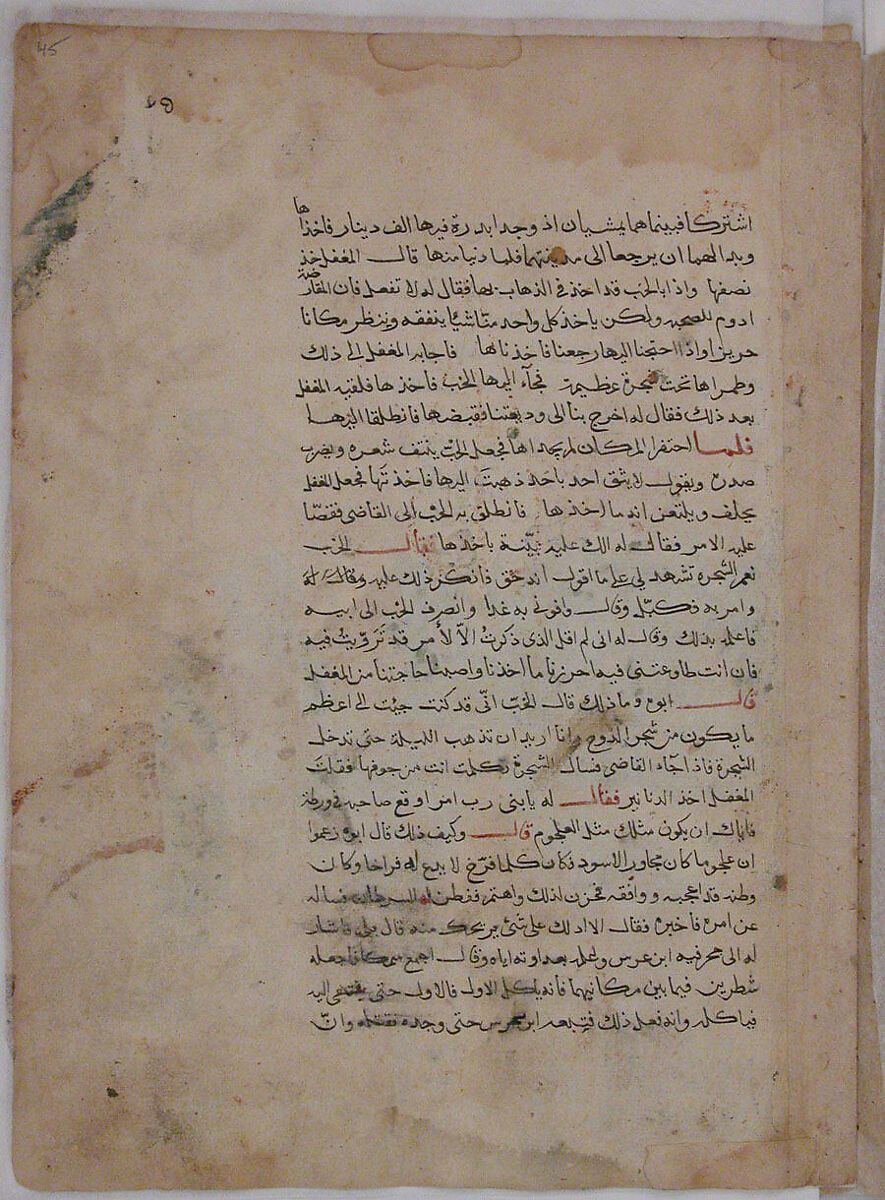 45
اشتركا فبينما هما يمشيان اذ وجدا بدرة فيها الف دينار فاخذاها
وبدا لهما ان يرجعا الى مدينتهما فلما دنيا منها قال المغفل خذ
نصفها واذا بالخب قد اخذ في الذهاب بها فقال له لا تفعل فان المفارضة
ادوم للصحبه ولكن ياخذ كل واحد منا شيا ينفقه وينظر مكانا
حريزا واذا احتجنا اليها رجعنا فاخذناها فاجابه المغفل الى ذلك
وطمراها تحت شجرة عظيمة فجآء اليها الخب فاخذها فلقيه المغفل
بعد ذلك فقال له اخرج بنا الى وديعتنا فنقبضها فانطلقا اليها
فلما احتفرا المكان لم يجداها فجعل الخب ينتف شعره ويضرب
صدره ويقول لا يثق احد باحد ذهبت اليها فاخذتها فجعل المغفل
يحلف ويلتعن انه ما اخذها فانطلق به الخب الى القاضى فقصا
عليه الامر فقال له الك عليه بينة باخذها فقال الخب
نعم الشجره تشهد لي على ما اقول انه حق فانكر ذلك عليه وقال له
وامر به فكبل وقال وافوني به غدا وانصرف الخب الى ابيه
فاعلمه بذلك وقال له انى لم اقل الذى ذكرت الا لأمر قد تروّيت فيه
فان انت طاوعتنى فيه احرزنا ما اخذنا واصبنا حاجتنا من المغفل
قال ابوه وما ذلك قال الخب انى قد كنت جيت الى اعظم
ما يكون من شجر الدوح وانا اريد ان تذهب الليلة حتى تدخل
الشجرة فاذا جآء القاضى فسال الشجرة تكلمت انت من جوفها فقلت
المغفل اخذ الدنانير فقال له يا بنى رب امر اوقع صاحبه في ورطة
فاياك ان يكون مثلك مثل العلجوم قال وكيف ذلك قال ابوه زعموا
ان علجوما كان مجاور الاسود فكان كلما فرخ لا يدع له فراخا وكان
وطنه قد اعجبه ووافقه فحزن لذلك واهتم ففطن له السرطان فساله
عن امره فاخبره فقال الا ادلك على شئ يريحك منه قال بلى فاشار
له الى جحر فيه ابن عرس واعلمه بعداوته اياه وقال اجمع سمكا فاجعله
شطرين فيما بين مكانيهما فانه ياكل الاول فالاول حتى ينتهى اليه
فياكله وانه فعل ذلك فتبعه ابن عرس حتى وجده فقتله وانّ